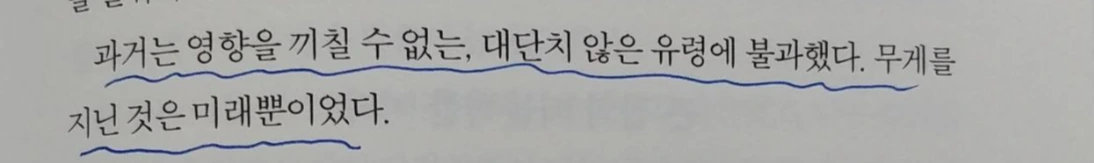 과거는 영향을 끼칠 수 없는, 대단치 않은 유령에 불과했다. 무게를
지닌 것은 미래뿐이었다.